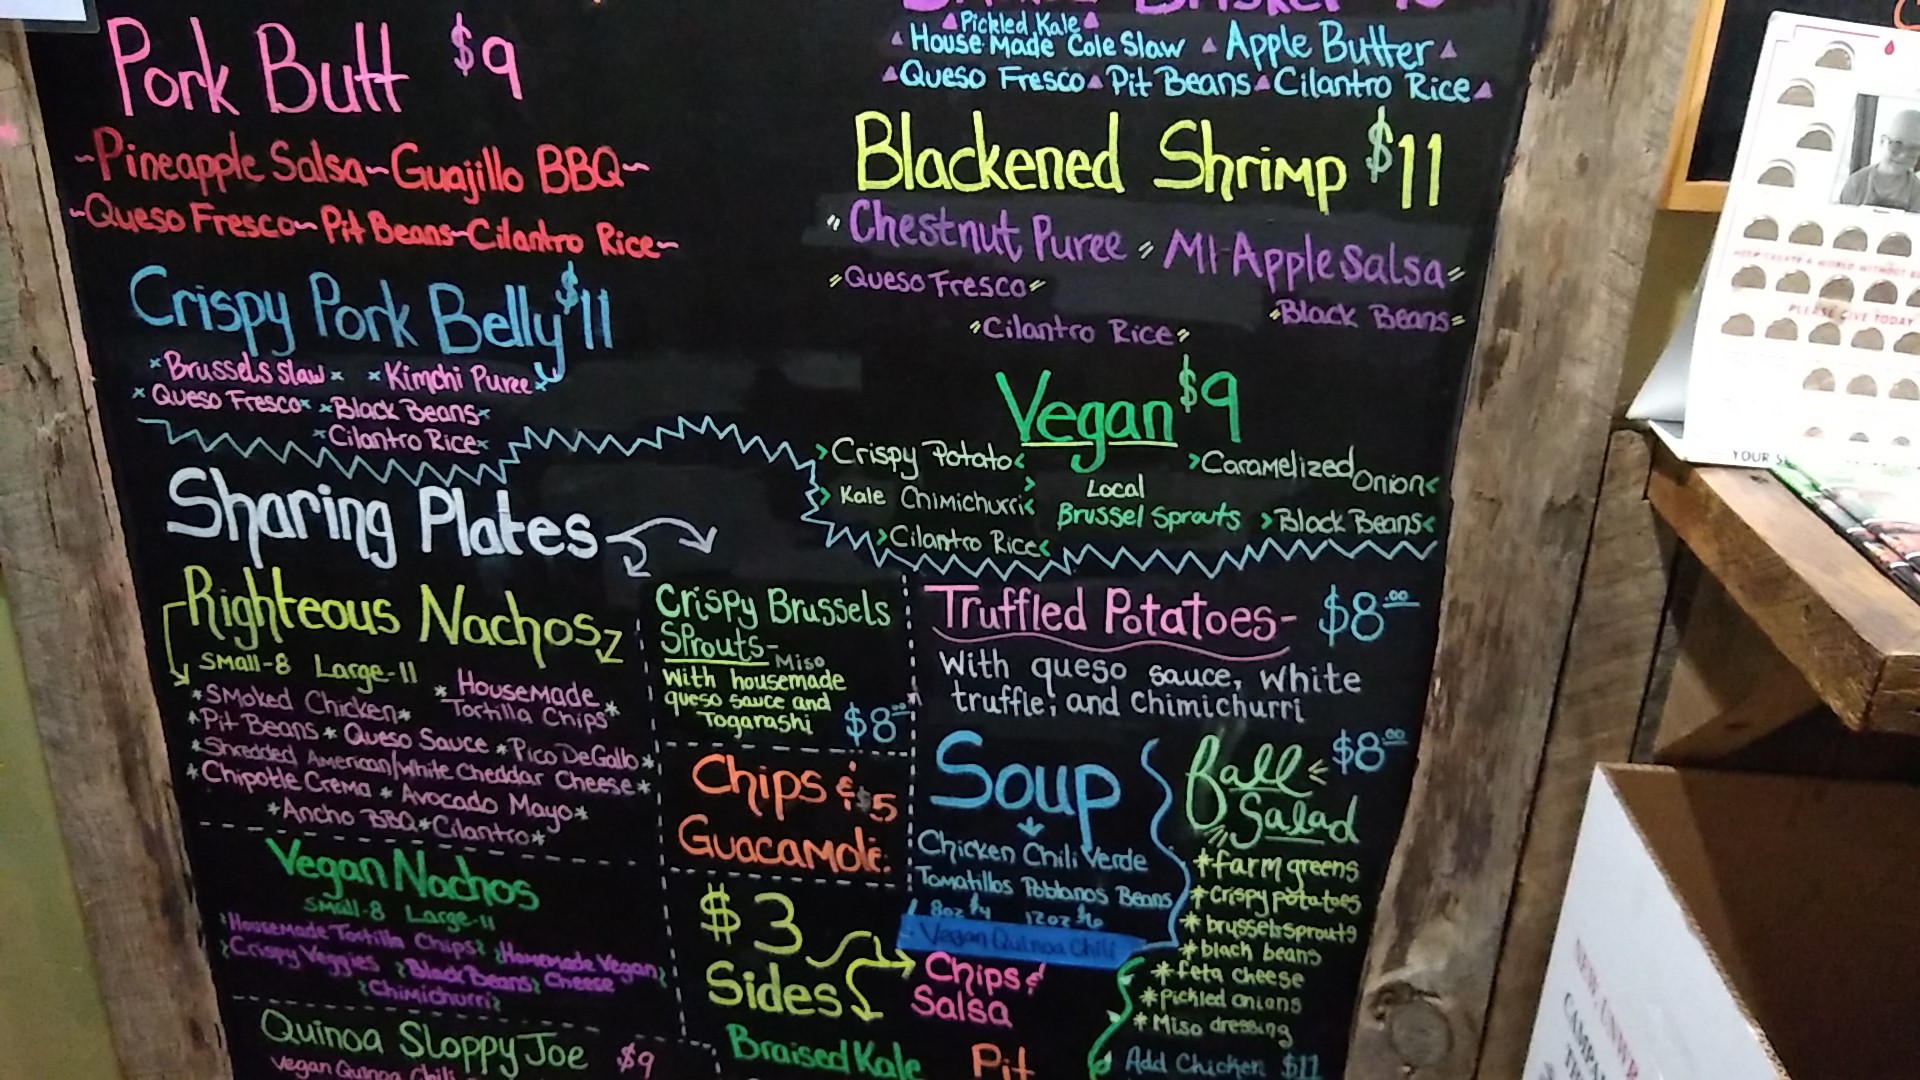 Pork Butt $9
~Pineapple Salsa~Guajillo BBQ~
~Queso Fresco~Pit Beans~Cilantro Rice~
Crispy Pork Belly $11
×Brussels Slaw× ×Kimchi Puree×
×Queso Fresco× ×Black Beans×
×Cilantro Rice×
Pickled Kale
House Made Cole Slaw Apple Butter
Queso Fresco Pit Beans Cilantro Rice
Blackened Shrimp $11
"Chestnut Puree" MI Apple Salsa"
"Queso Fresco"
"Black Beans"
"Cilantro Rice"
Vegan $9
>Crispy Potato< >Caramelized Onion<
>Kale Chimichurri< >Local
Brussel Sprouts >Black Beans<
>Cilantro Rice<
Sharing Plates
Righteous Nachos
Small-8 Large-11
*Smoked Chicken* *Housemade
Tortilla Chips*
*Pit Beans* Queso Sauce *Pico De Gallo*
*Shredded American/White Cheddar Cheese*
*Chipotle Crema * Avocado Mayo*
*Ancho BBQ*Cilantro*
Vegan Nachos
Small-8 Large-11
Housemade Tortilla Chips Homemade Vegan
Crispy Veggies Black Beans Cheese
Chimichurri
Quinoa Sloppy Joe $9
Vegan Quinoa Chili
Crispy Brussels
Sprouts-
Miso
with housemade
queso sauce and
Togarashi $8
Chips & $5
Guacamole
$3
Sides
Chips &
Salsa
Braised Kale Pit
Truffled Potatoes- $8.00
with queso sauce, white
truffle, and Chimichurri
Soup
Chicken Chili Verde
Tomatillos Poblanos Beans
8oz $4 12oz $6
- Vegan Quinoa Chili
Fall $8.00
Salad
*farm greens
*Crispy potatoes
*brussels sprouts
*black beans
*feta cheese
*pickled onions
*Miso dressing
Add Chicken $11
PLEASE GIVE TODAY
YOUR